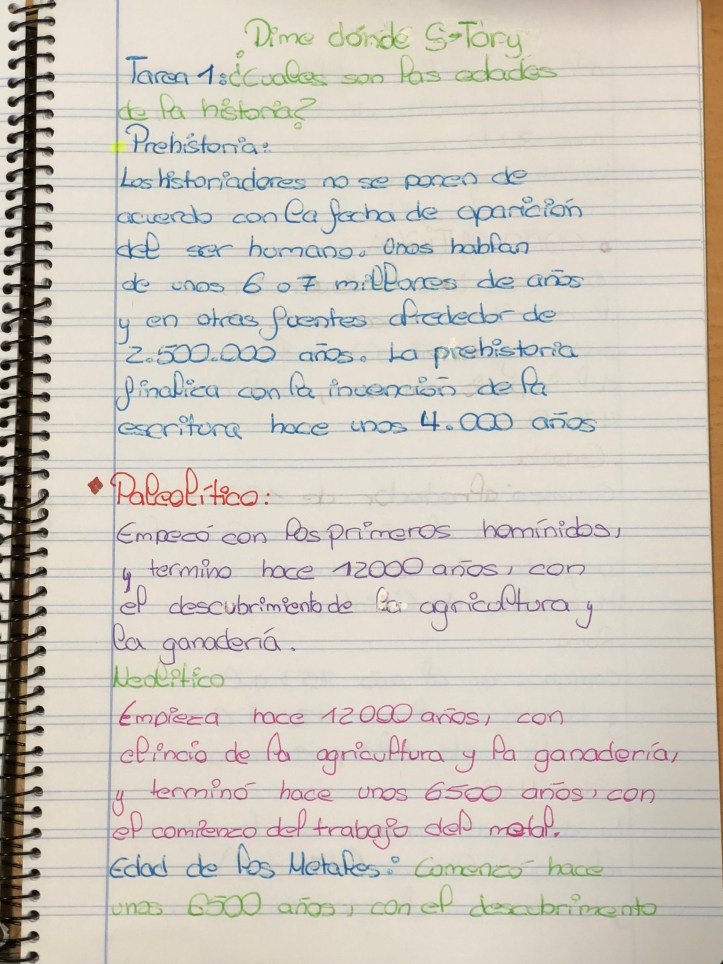 Dime dónde S-Tory
Tarea 1: ¿Cuales son las edades
de la historia?
Prehistoria:
Los historiadores no se ponen de
acuerdo con la fecha de aparición
del ser humano. Unos hablan
de unos 6 o 7 millones de años
y en otras fuentes alrededor de
2.500.000 años. La prehistoria
finaliza con la invención de la
escritura hace unos 4.000 años
Paleolítico:
Empecó con los primeros homínidos,
y termino hace 12000 años, con
el descubrimiento de la agricultura y
la ganadería.
Neolítico
Empieza hace 12000 años, con
el incio de la agricultura y la ganadería,
y terminó hace unos 6500 años, con
el comienzo del trabajo del metal.
Edad de los Metales: Comenzó hace
unos 6500 años, con el descubrimento